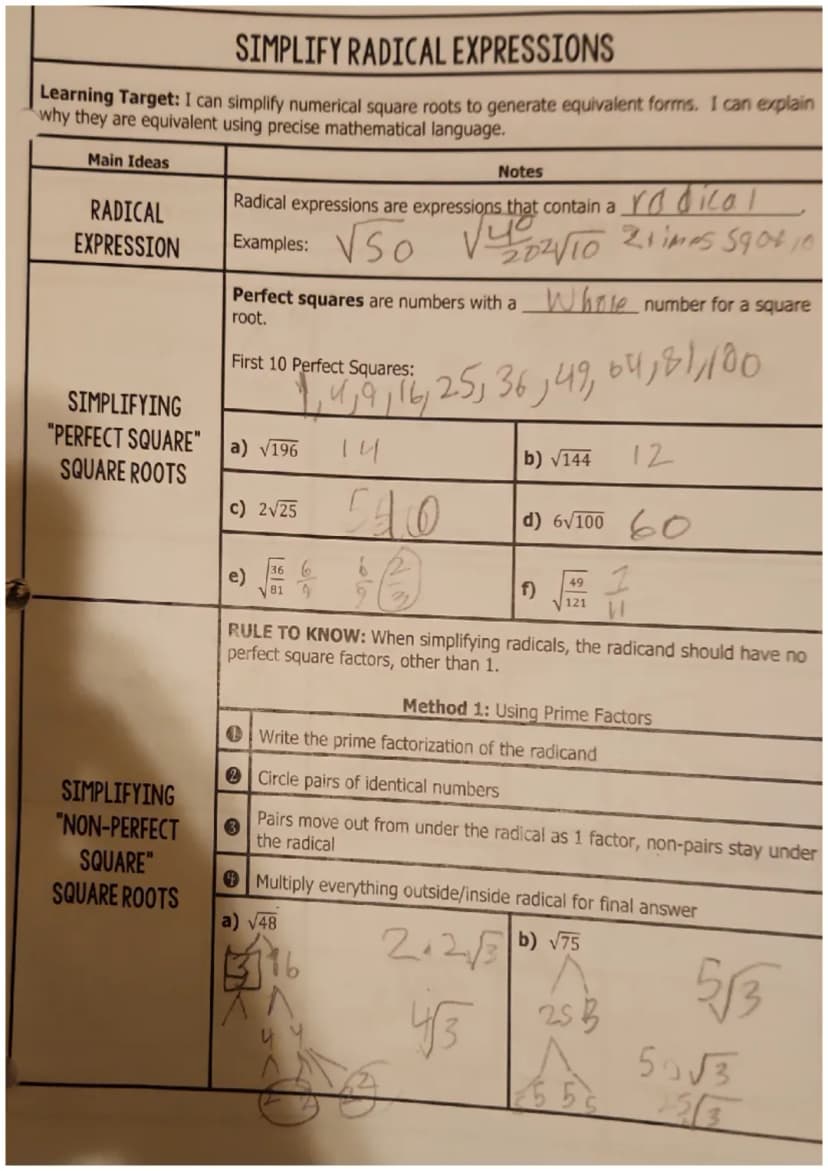 SIMPLIFY RADICAL EXPRESSIONS
Learning Target: I can simplify numerical square roots to generate equivalent forms. I can explain
why they are equivalent using precise mathematical language.
Main Ideas
Notes
RADICAL
EXPRESSION
Radical expressions are expressions that contain a radical.
Examples: √50 √40 2√10 2 times
SIMPLIFYING
"PERFECT SQUARE"
SQUARE ROOTS
Perfect squares are numbers with a Whole number for a square
root.
First 10 Perfect Squares:
1, 4, 9, 16, 25, 36, 49, 64, 81, 100
a) √196 14
b) √144 12
c) 2√25 10
d) 6√100 60
e) √36/81 6/9 6/9 2/3
f) √49/121 7/11
SIMPLIFYING
"NON-PERFECT
SQUARE"
SQUARE ROOTS
RULE TO KNOW: When simplifying radicals, the radicand should have no
perfect square factors, other than 1.
Method 1: Using Prime Factors
1 Write the prime factorization of the radicand
2 Circle pairs of identical numbers
3 Pairs move out from under the radical as 1 factor, non-pairs stay under
the radical
4 Multiply everything outside/inside radical for final answer
a) √48
3 16
4 4
2 2 2 2
2·2√3
4√3
b) √75
25 3
5 5
5√3
5√3
5√3